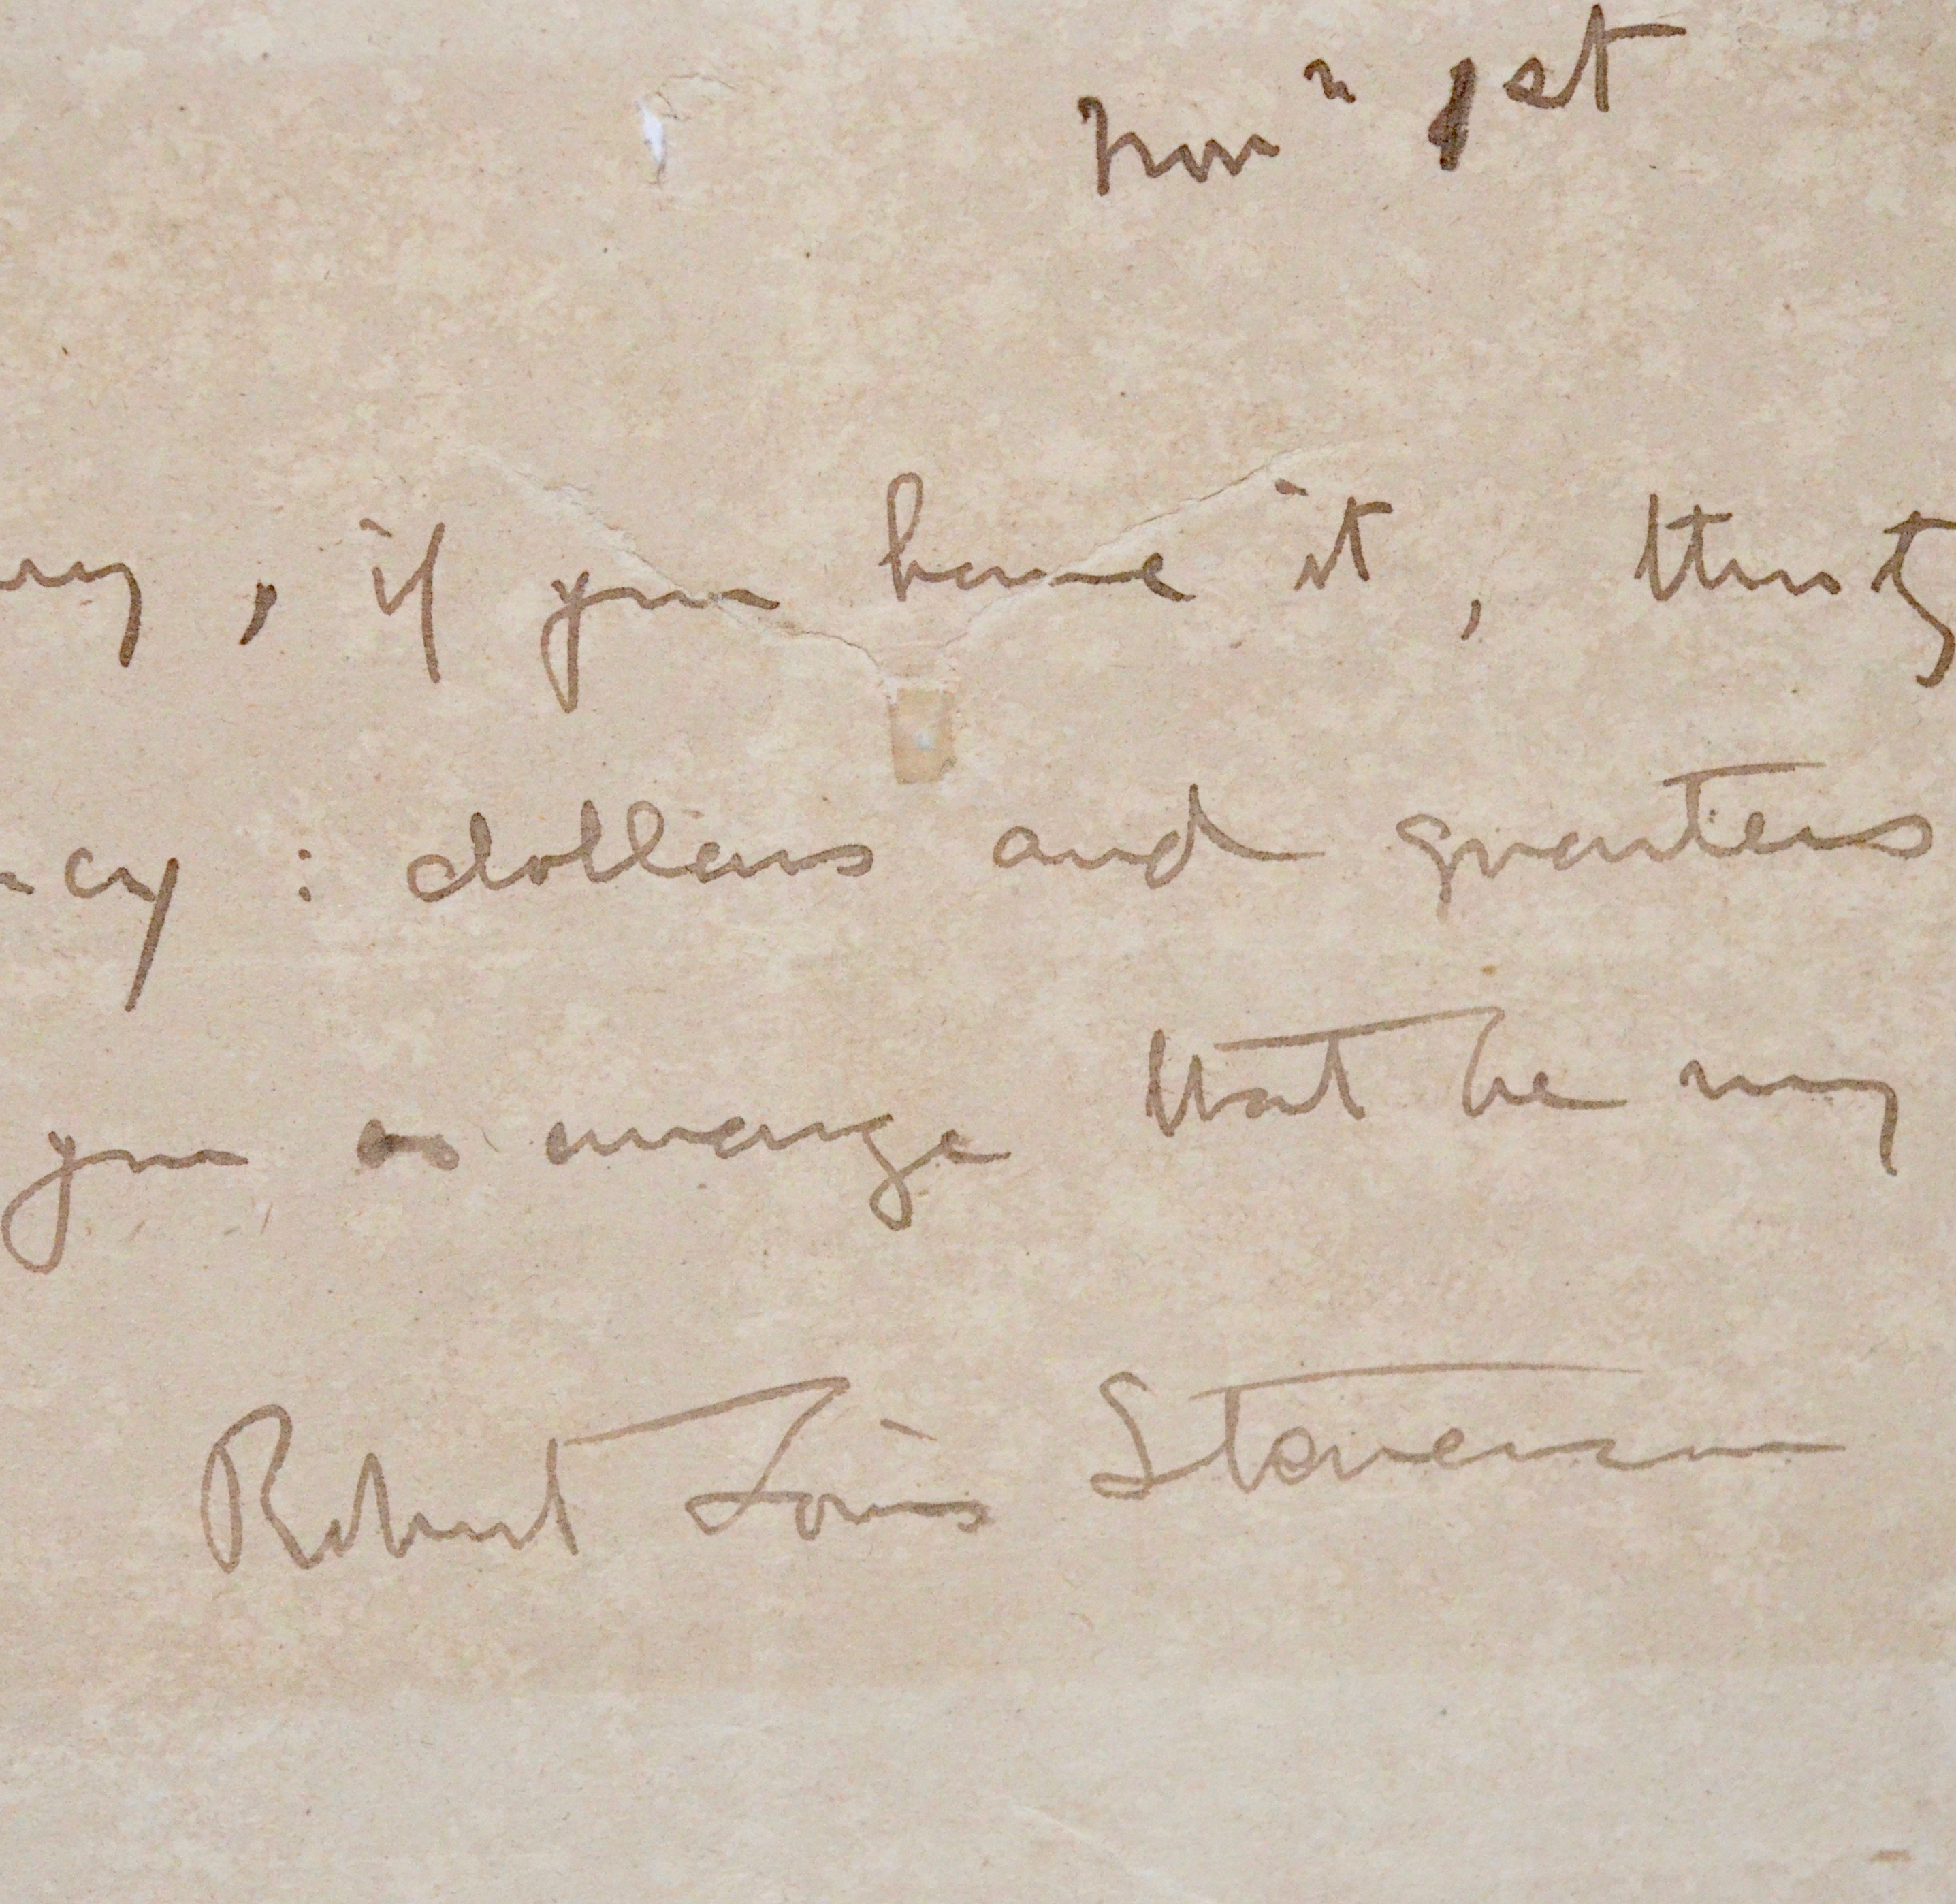 Novr 1st
, if you have it, thirty
cy : dollars and quarters
you so arrange that he may
Robert Louis Stevenson